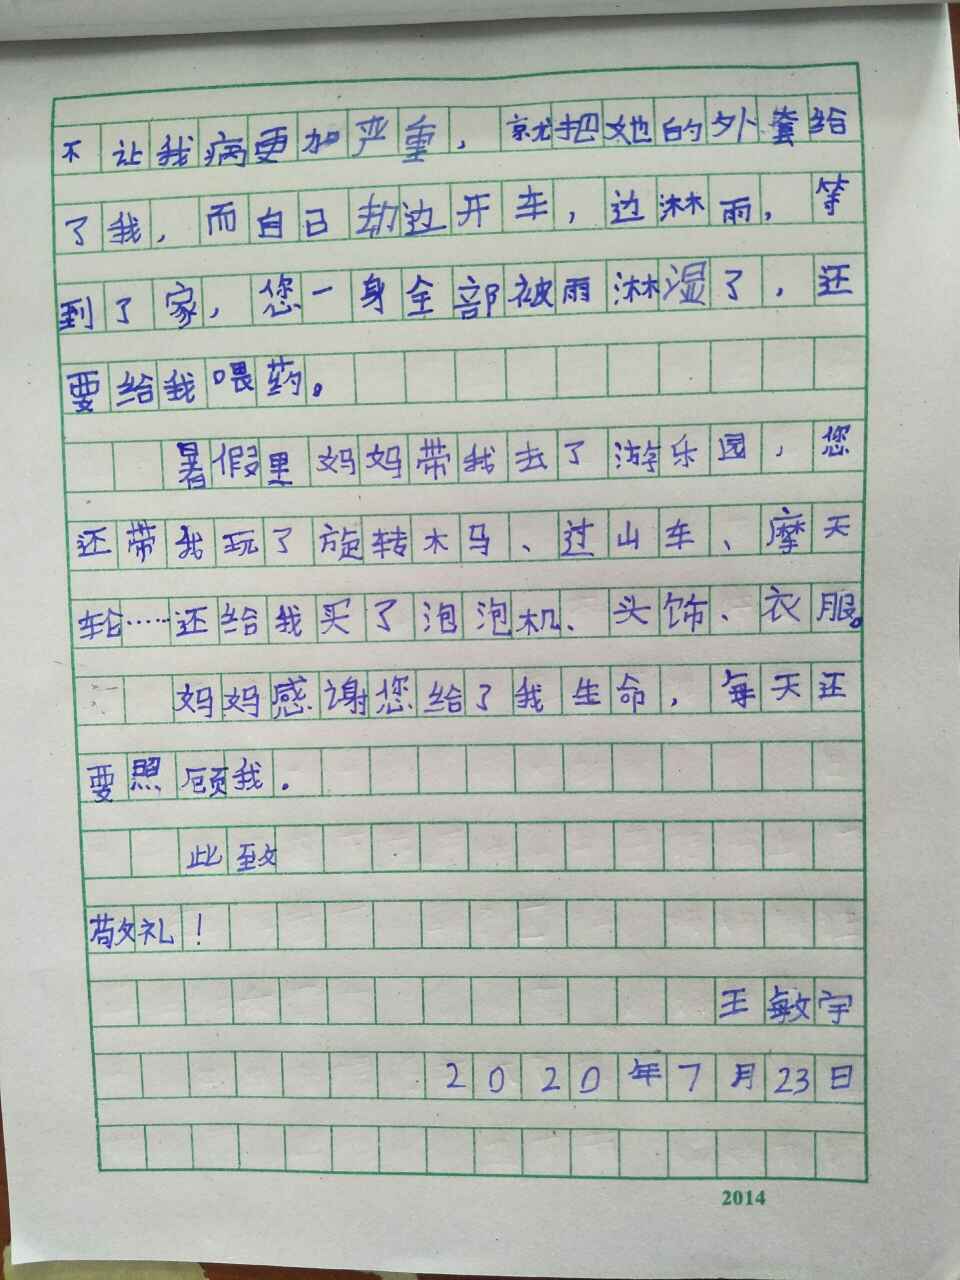 不让我病更加严重，就把她的外套给
了我，而自己却边开车，边淋雨，等
到了家，您一身全部被雨淋湿了，还
要给我喂药。
暑假里妈妈带我去了游乐园，您
还带我玩了旋转木马、过山车、摩天
轮……还给我买了泡泡机、头饰、衣服。
妈妈感谢您给了我生命，每天还
要照顾我。
此致
敬礼！
王敏宇
2020年7月23日
2014